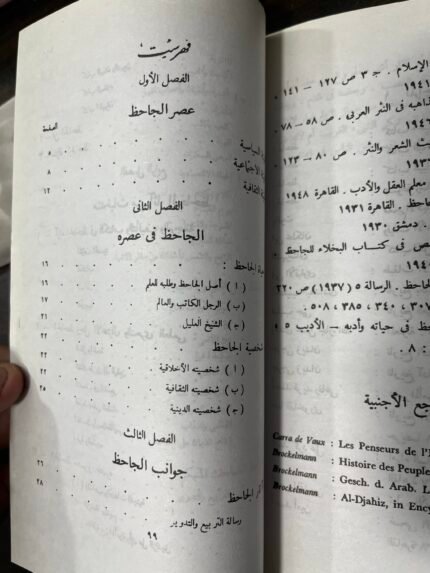 فهرست
الفصل الأول
عصر الجاحظ
الصفحة
السياسية . . . . . . . ٥
الاجتماعية . . . . . . . ٨
الثقافية . . . . . . . ١٢
الفصل الثانى
الجاحظ فى عصره
الجاحظ : . . . . . . . ١٦
( ا ) أصل الجاحظ وطلبه للعلم . . . . ١٦
(ب) الرجل الكاتب والعالم . . . . ١٧
(ج) الشيخ العليل . . . . ٢١
شخصية الجاحظ . . . . . . . ٢٢
( ا ) شخصيته الأخلاقية . . . . ٢٢
(ب) شخصيته الثقافية . . . . ٢٥
(ج) شخصيته الدينية
الفصل الثالث
جوانب الجاحظ
٢٦
الجاحظ . . . . . . . ٢٨
رسالة التربيع والتدوير
٩٩
الإسلام . ج ٣ ص ١٢٧ – ١٤١ .
١٩٤١
مذاهبه فى النثر العربى . ص ٥٨ – ٧٨ .
١٩٤٦
الشعر والنثر . ص ٨٠ – ١٢٣ .
معلم العقل والأدب . القاهرة ١٩٤٨
. القاهرة ١٩٣١
. دمشق ١٩٣٠
فى كتاب البخلاء للجاحظ .
. الرسالة ٥ (١٩٣٧) ص ٢٢٠
٣٠٧ ، ٣٤٠ ، ٣٨٥ ، ٥٠٨ .
فى حياته وأدبه – الأديب ٥
: ٨ .
الأجنبية
Carra de Vaux : Les Penseurs de l'I
Brockelmann : Histoire des Peuple
Brockelmann : Gesch. d. Arab. L
Brockelmann : Al-Djahiz, in Ency